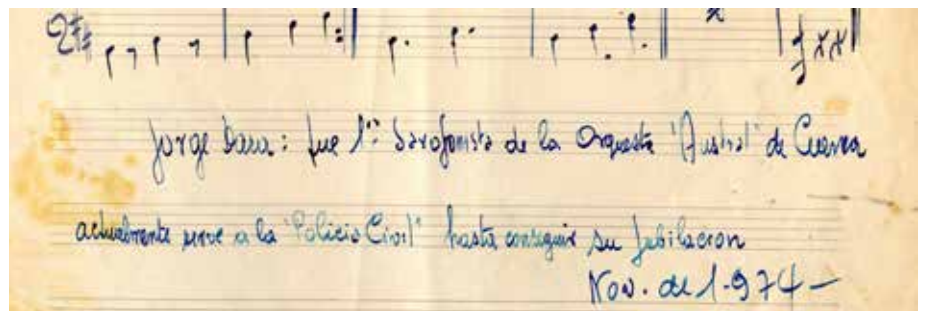 Jorge : fue 1º Saxofonista de la Orquesta "Austral" de Cuenca
actualmente sirve a la "Policia Civil" hasta conseguir su jubilacion
Nov. de 1-974-